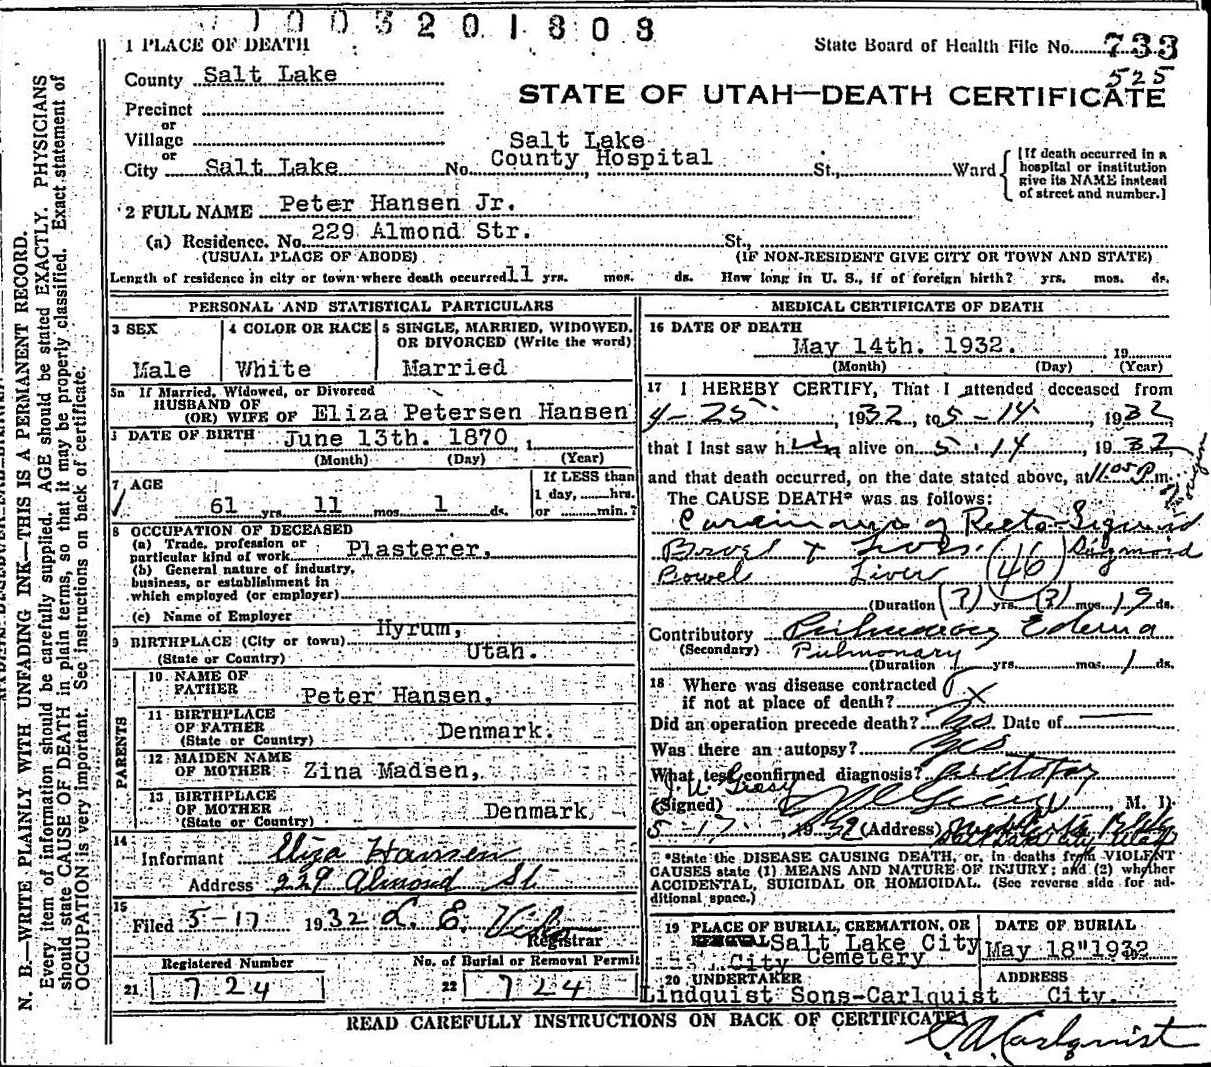 1003201808
1 PLACE OF DEATH
State Board of Health File No. 733
525
County Salt Lake
STATE OF UTAH—DEATH CERTIFICATE
Precinct
or
Village
or
City Salt Lake No. Salt Lake County Hospital St., Ward
[If death occurred in a hospital or institution give its NAME instead of street and number.]
2 FULL NAME Peter Hansen Jr.
(a) Residence. No. 229 Almond Str. St.,
(USUAL PLACE OF ABODE) (IF NON-RESIDENT GIVE CITY OR TOWN AND STATE)
Length of residence in city or town where death occurred 11 yrs. mos. ds. How long in U. S., if of foreign birth? yrs. mos. ds.
PERSONAL AND STATISTICAL PARTICULARS
3 SEX Male
4 COLOR OR RACE White
5 SINGLE, MARRIED, WIDOWED, OR DIVORCED (Write the word) Married
5a If Married, Widowed, or Divorced
HUSBAND OF
(OR) WIFE OF Eliza Petersen Hansen
DATE OF BIRTH June 13th. 1870, 1
(Month) (Day) (Year)
7 AGE 61 yrs. 11 mos. 1 ds.
If LESS than 1 day, hrs. or min.?
8 OCCUPATION OF DECEASED
(a) Trade, profession or particular kind of work Plasterer,
(b) General nature of industry, business, or establishment in which employed (or employer)
(c) Name of Employer
9 BIRTHPLACE (City or town) Hyrum,
(State or Country) Utah.
PARENTS
10 NAME OF FATHER Peter Hansen,
11 BIRTHPLACE OF FATHER (State or Country) Denmark.
12 MAIDEN NAME OF MOTHER Zina Madsen,
13 BIRTHPLACE OF MOTHER (State or Country) Denmark
14 Informant Eliza Hansen
Address 229 Almond St.
15 Filed 5-17 1932 L. E.
Registrar
Registered Number
21 724
No. of Burial or Removal Permit
22 724
MEDICAL CERTIFICATE OF DEATH
16 DATE OF DEATH
May 14th. 1932. 19
(Month) (Day) (Year)
17 I HEREBY CERTIFY, That I attended deceased from
4-25, 1932, to 5-14, 1932
that I last saw him alive on 5-14, 1932
and that death occurred, on the date stated above, at 11 05 P. m.
The CAUSE DEATH* was as follows:
Carcinoma of Recto-Sigmoid
Bowel & Liver (46) Sigmoid
Bowel Liver
(Duration (?) yrs. (?) mos. 19 ds.
Contributory Pulmonary Edema
(Secondary) Pulmonary
(Duration yrs. mos. 1 ds.
18 Where was disease contracted
if not at place of death? X
Did an operation precede death? Yes Date of
Was there an autopsy? Yes
What test confirmed diagnosis? autopsy
(Signed) M. D.
5-17, 1932 (Address) Salt Lake City Utah
*State the DISEASE CAUSING DEATH, or, in deaths from VIOLENT
CAUSES state (1) MEANS AND NATURE OF INJURY; and (2) whether
ACCIDENTAL, SUICIDAL OR HOMICIDAL. (See reverse side for ad-
ditional space.)
19 PLACE OF BURIAL, CREMATION, OR REMOVAL Salt Lake City
City Cemetery
DATE OF BURIAL
May 18" 1932
20 UNDERTAKER
Lindquist Sons-Carlquist
ADDRESS
City.
READ CAREFULLY INSTRUCTIONS ON BACK OF CERTIFICATE
C. A. Carlquist
N. B.—WRITE PLAINLY WITH UNFADING INK—THIS IS A PERMANENT RECORD.
Every item of information should be carefully supplied. AGE should be stated EXACTLY. PHYSICIANS
should state CAUSE OF DEATH in plain terms, so that it may be properly classified. Exact statement of
OCCUPATION is very important. See instructions on back of certificate.